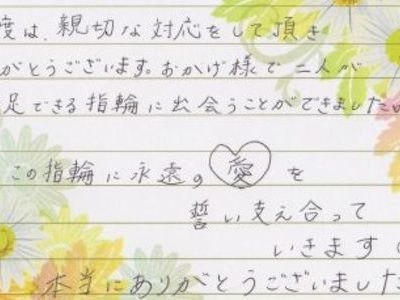 度は、親切な対応をして頂き
がとうございます。おかげ様で二人が
足できる指輪に出会うことができました
この指輪に永遠の愛を
誓い支え合って
いきます
本当にありがとうございました